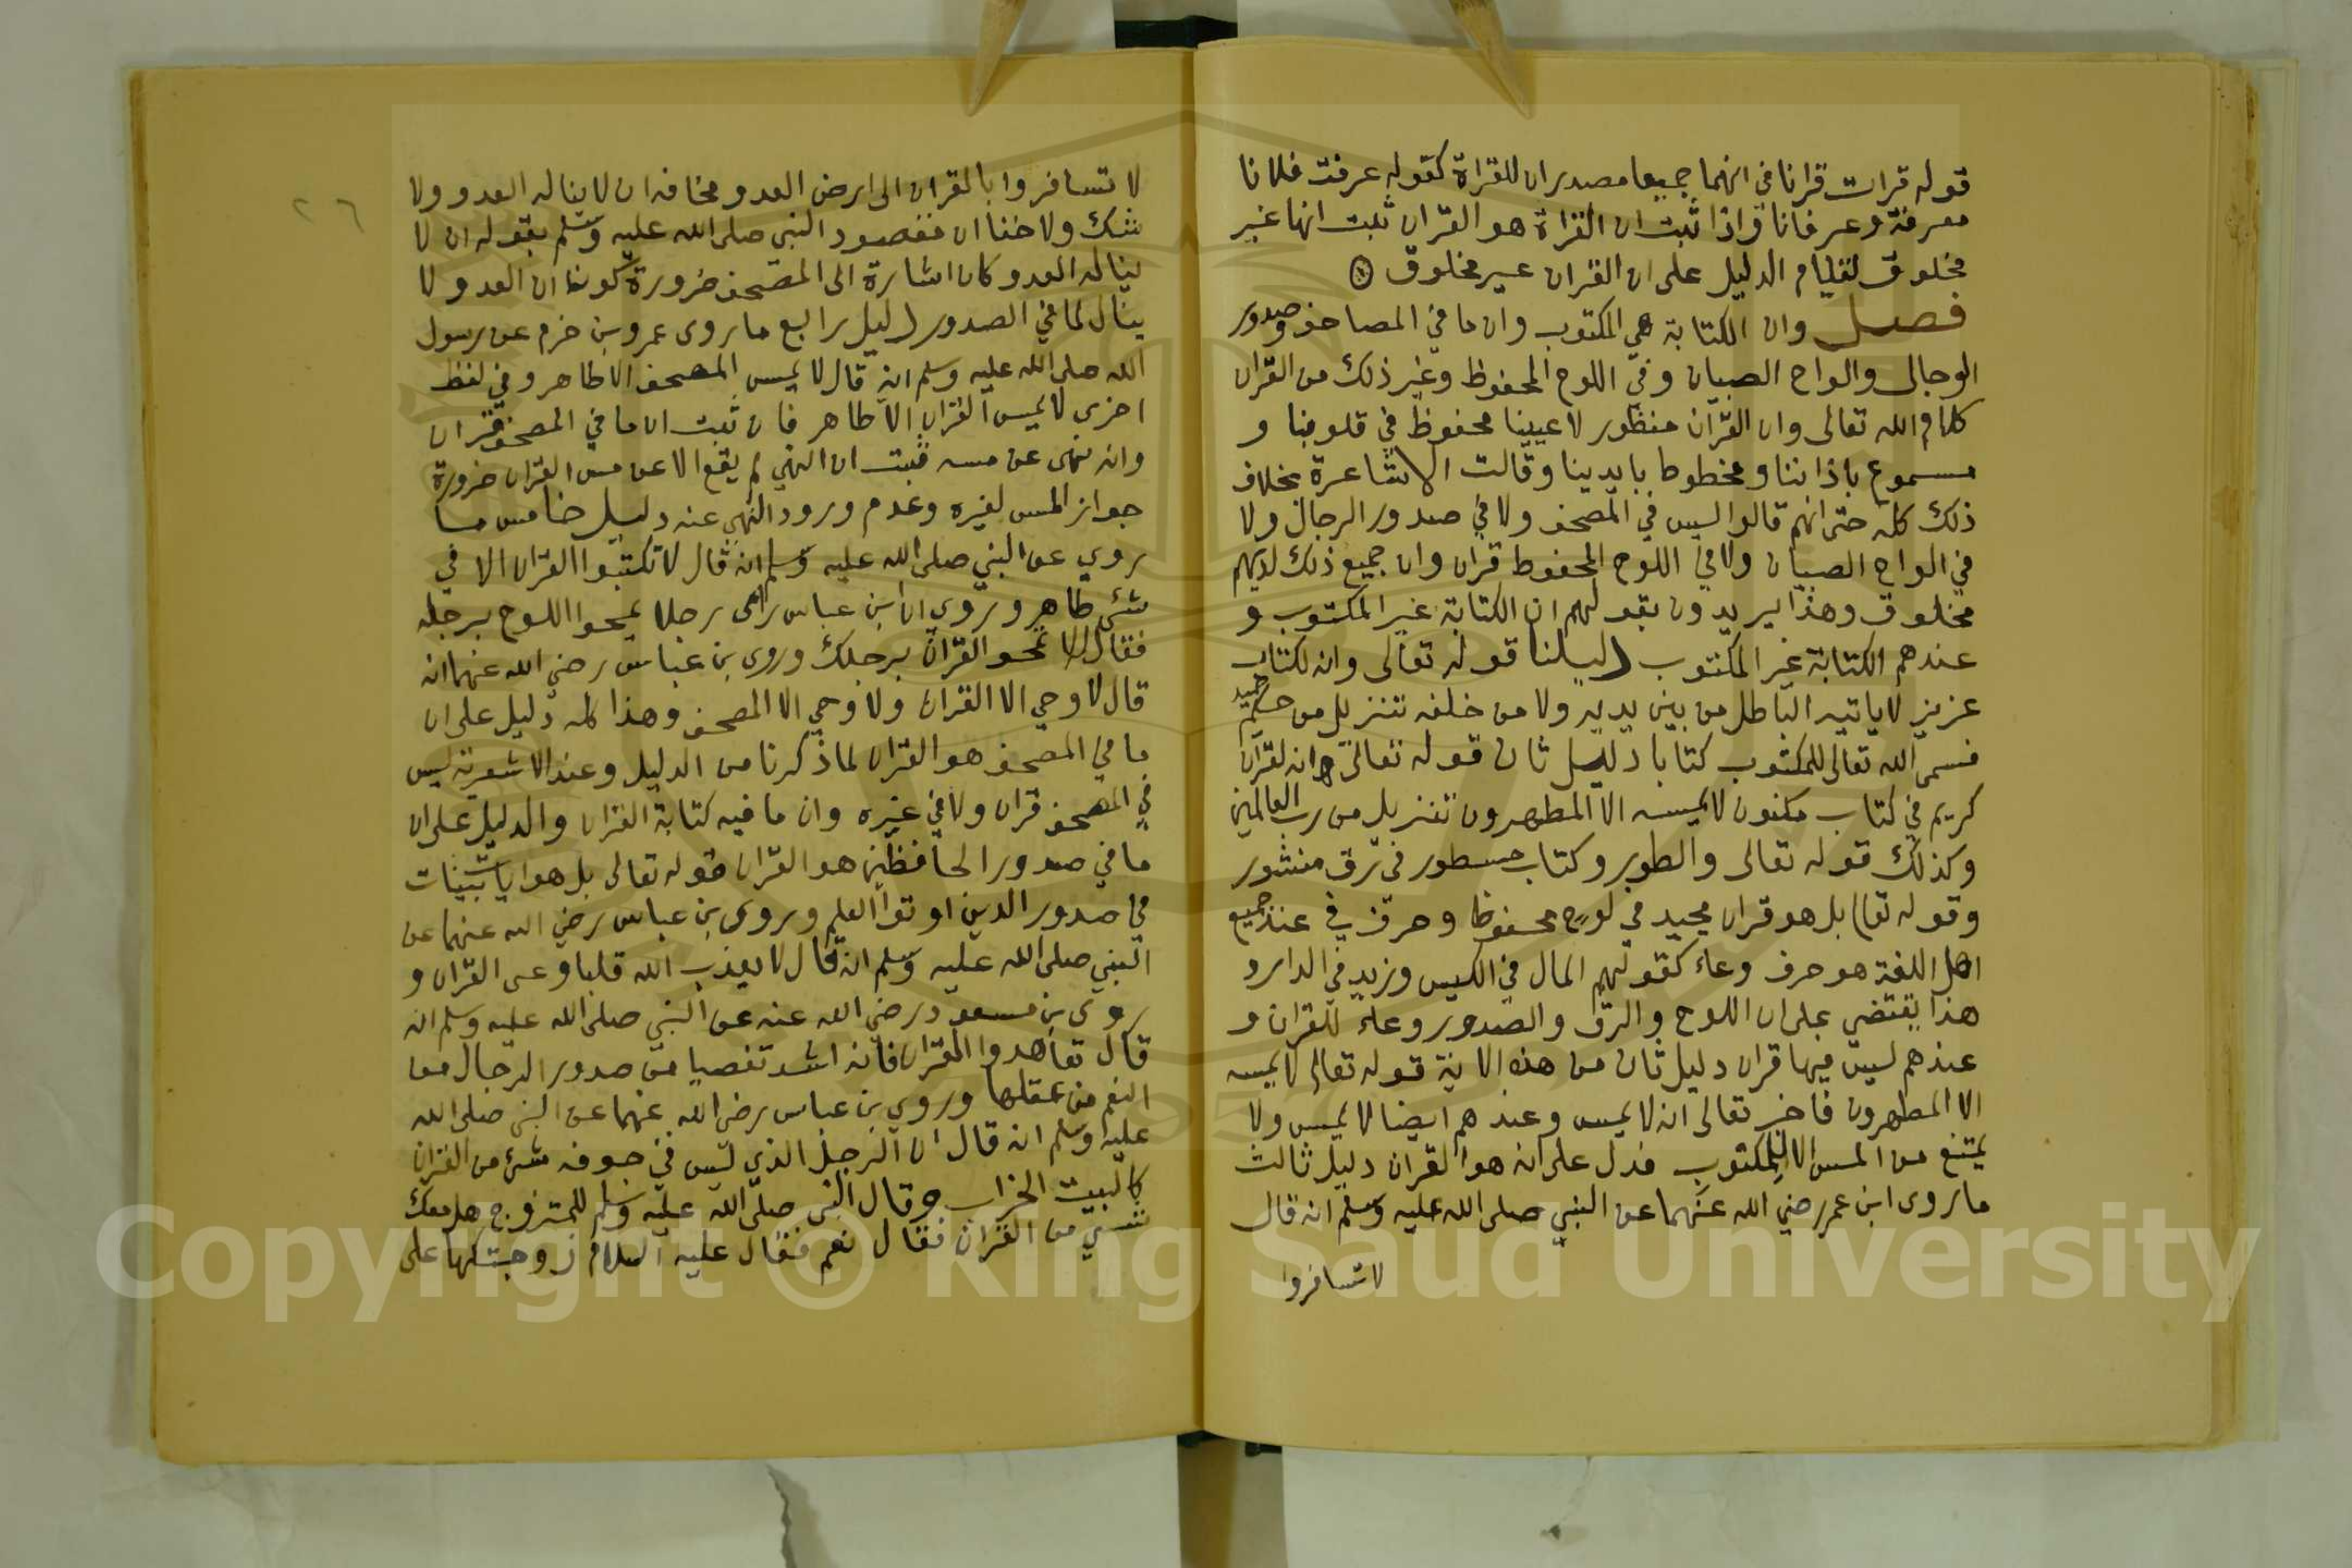 قوله قرات قرانا في انهما جميعا مصدران للقراة كقوله عرفت فلانا
معرفة وعرفانا واذا ثبت ان القراة هو القران ثبت انها غير
مخلوق لقيام الدليل على ان القران غير مخلوق
فصل وان الكتابة هي المكتوب وان ما في المصاحف وصدور
الرجال والواح الصبيان وفي اللوح المحفوظ وغير ذلك من القران
كلام الله تعالى وان القران منظور لاعيينا محفوظ في قلوبنا و
مسموع باذاننا ومخطوط بايدينا وقالت الاشاعرة بخلاف
ذلك كله حتى انهم قالوا ليس في المصحف ولا في صدور الرجال ولا
في الواح الصبيان ولا في اللوح المحفوظ قران وان جميع ذلك لديهم
مخلوق وهذا يريدون بقولهم ان الكتابة غير المكتوب و
عندهم الكتابة غير المكتوب دليلنا قوله تعالى وانه لكتاب
عزيز لا ياتيه الباطل من بين يديه ولا من خلفه تنزيل من حكيم حميد
فسمى الله تعالى للمكتوب كتابا دليل ثان قوله تعالى انه لقران
كريم في كتاب مكنون لا يمسه الا المطهرون تنزيل من رب العالمين
وكذلك قوله تعالى والطور وكتاب مسطور في رق منشور
وقوله تعا بل هو قران مجيد في لوح محفوظ وحرف في عند جميع
اهل اللغة هو حرف وعاء كقولهم المال في الكيس وزيد في الدار و
هذا يقتضي على ان اللوح والرق والصدور وعاء للقران و
عندهم ليس فيها قران دليل ثان من هذه الاية قوله تعالى لا يمسه
الا المطهرون فاخبر تعالى انه لا يمس وعندهم ايضا لا يمس ولا
يمتنع من المس الا المكتوب فدل على انه هو القران دليل ثالث
ما روى ابن عمر رضي الله عنهما عن النبي صلى الله عليه وسلم انه قال
لا تسافروا
٢٦
لا تسافروا بالقران الى ارض العدو مخافة ان لا يناله العدو ولا
شك ولا خفا ان مقصود النبي صلى الله عليه وسلم بقوله ان لا
يناله العدو كان اشارة الى المصحف ضرورة كون ان العدو لا
ينال لما في الصدور دليل رابع ما روى عمرو بن حزم عن رسول
الله صلى الله عليه وسلم انه قال لا يمس المصحف الا طاهر وفي لفظ
اخرى لا يمس القران الا طاهر فان ثبت ان ما في المصحف قران
وانه نهى عن مسه فثبت ان النهي لم يقع الا عن مس القران ضرورة
جواز المس لغيره وعدم ورود النهي عنه دليل خامس ما
روي عن النبي صلى الله عليه وسلم انه قال لا تكتبوا القران الا في
شئ طاهر وروي ان ابن عباس راى رجلا يمحوا اللوح برجله
فقال لا تمحو القران برجلك وروي بن عباس رضي الله عنهما انه
قال لا وحي الا القران ولا وحي الا المصحف وهذا كله دليل على ان
ما في المصحف هو القران لما ذكرنا من الدليل وعند الاشعرية ليس
في المصحف قران ولا في غيره وان ما فيه كتابة القران والدليل على ان
ما في صدور الحافظين هو القران قوله تعالى بل هو ايات بينات
في صدور الذين اوتوا العلم وروى بن عباس رضي الله عنهما عن
النبي صلى الله عليه وسلم انه قال لا يعذب الله قلبا وعى القران و
روى بن مسعود رضي الله عنه عن النبي صلى الله عليه وسلم انه
قال تعاهدوا القران فانه اشد تفصيا من صدور الرجال من
النعم من عقلها وروي بن عباس رضي الله عنهما عن النبي صلى الله
عليه وسلم انه قال ان الرجل الذي ليس في جوفه شئ من القران
كالبيت الخراب وقال النبي صلى الله عليه وسلم للمتزوج هل معك
شي من القران فقال نعم فقال عليه السلام زوجتكها على
Copyright © King Saud University